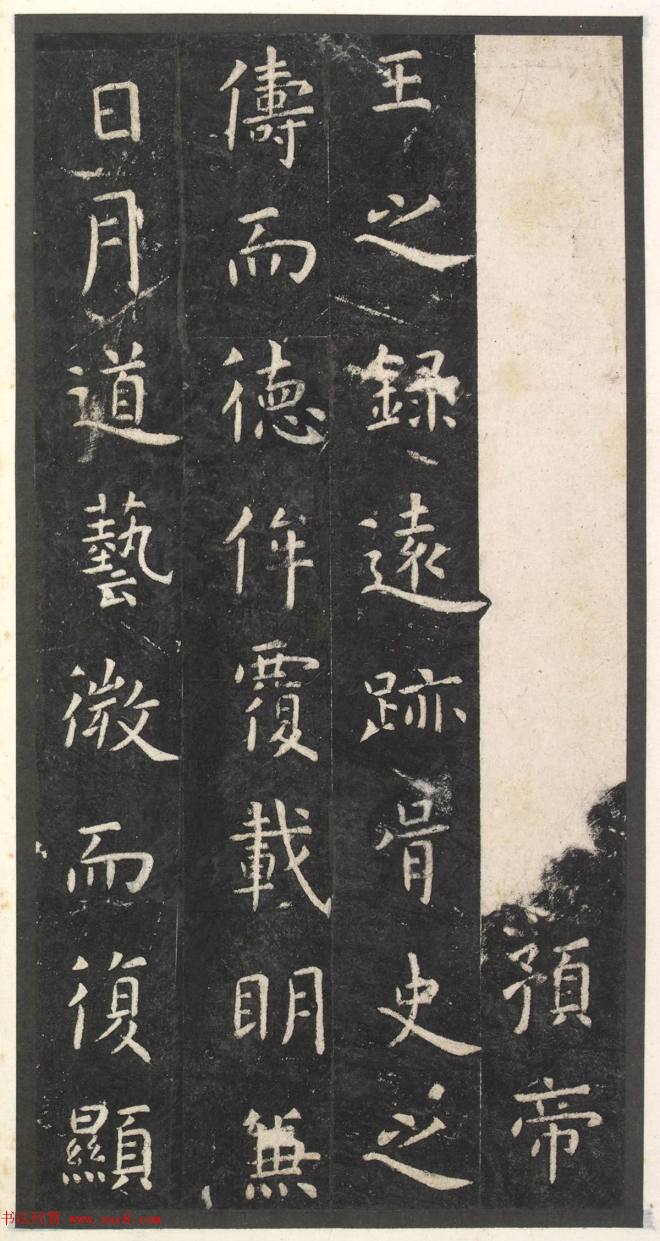 預帝
王之錄遠跡胥史之
儔而德侔覆載明兼
日月道藝微而復顯
书法欣赏 www.yac8.com